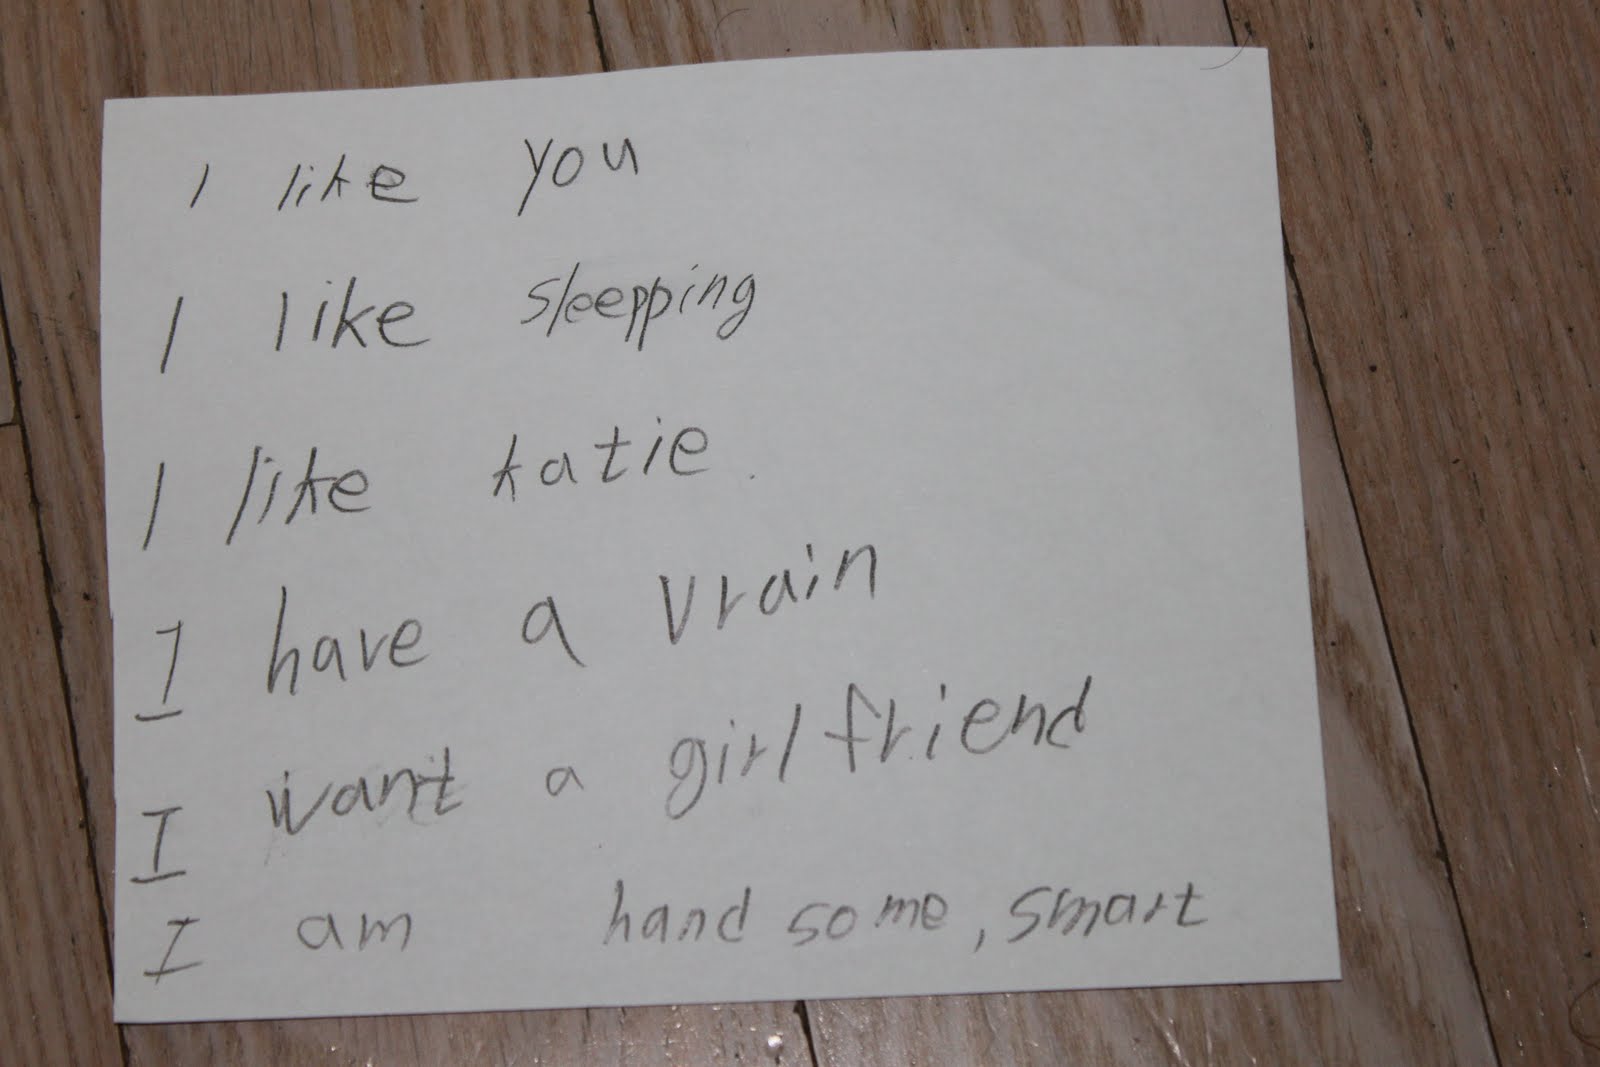 I like you
I like sleepping
I like katie.
I have a vrain
I want a girlfriend
I am hand some, smart